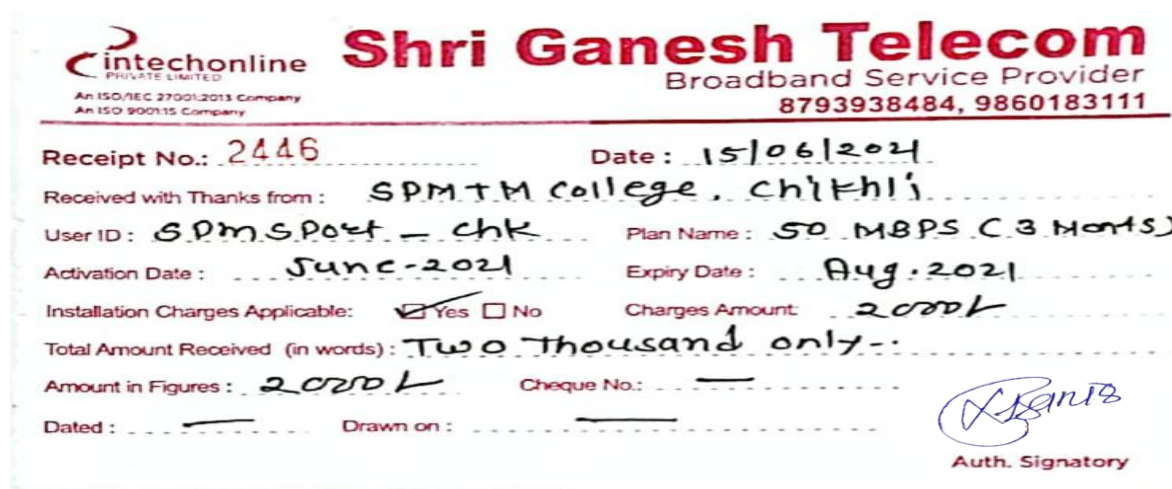 intechonline Shri Ganesh Telecom
PRIVATE LIMITED
Broadband Service Provider
An ISO/IEC 27001:2013 Company
An ISO 9001:15 Company
8793938484, 9860183111
Receipt No.: 2446 Date : 15/06/2021
Received with Thanks from : SPMTM College, Chikhli
User ID : SPMSPort - chk Plan Name : 50 MBPS (3 Monts)
Activation Date : June-2021 Expiry Date : Aug.2021
Installation Charges Applicable: Yes No Charges Amount: 2000/-
Total Amount Received (in words) : Two Thousand only-:
Amount in Figures : 2000/- Cheque No.: —
Dated : — Drawn on : —
Auth. Signatory